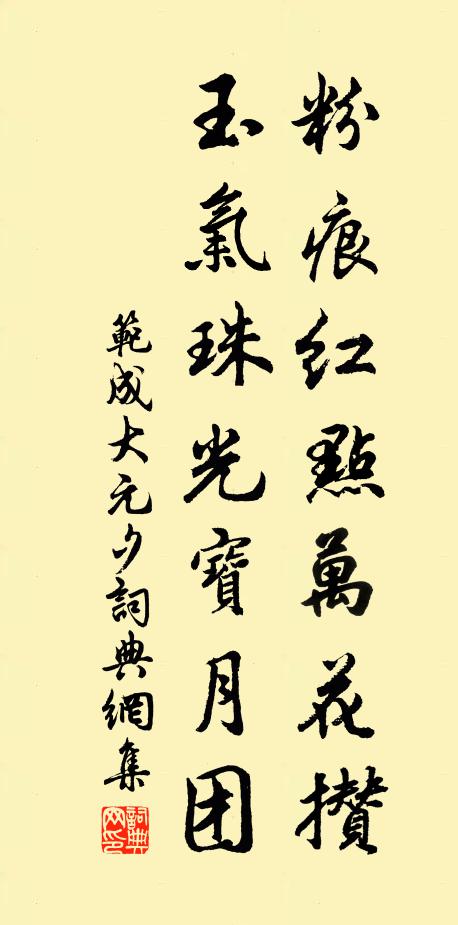 粉痕红點萬花攅
玉氣珠光寶月团
範成大元夕詞典網集
詞典网印